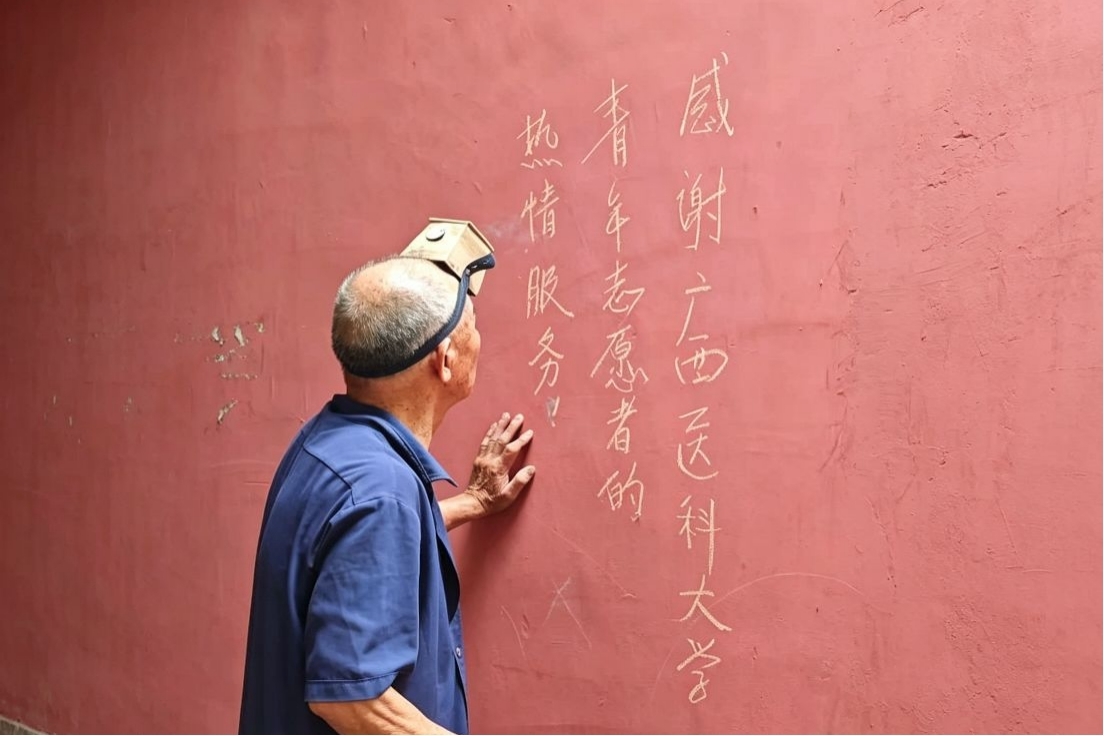 感谢广西医科大学
青年志愿者的
热情服务!